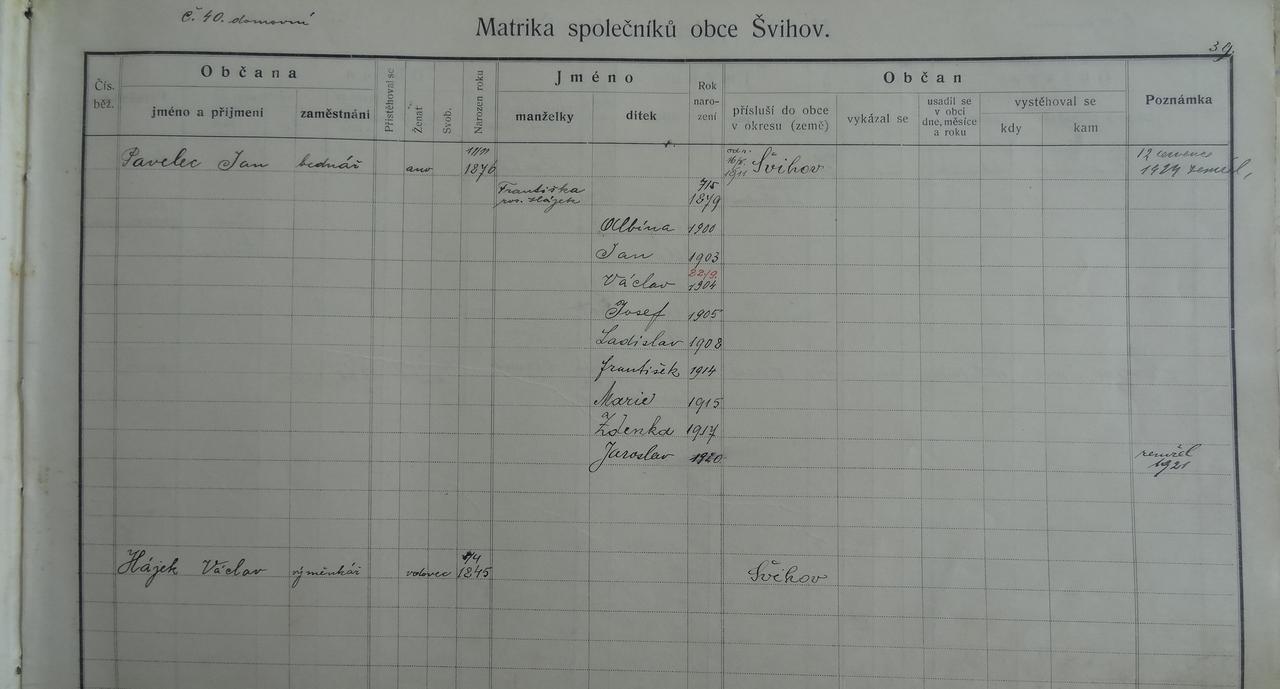 č. 40. domovní
Matrika společníků obce Švihov.
39.
Čís. běž.
Občana
jméno a příjmení
zaměstnání
Přistěhoval se
Ženat
Svob.
Narozen roku
Jméno
manželky
dítek
Rok naro- zení
Občan
přísluší do obce v okresu (země)
vykázal se
usadil se v obci dne, měsíce a roku
vystěhoval se
kdy
kam
Poznámka
Pavelec Jan bednář ano 1876 Švihov 12 července 1924 zemřel,
Františka roz. Hájek 7/5 1879
Albína 1900
Jan 1903
Václav 22/9. 1904
Josef 1905
Ladislav 1908
František 1914
Marie 1915
Zdenka 1917
Jaroslav 1920 zemřel 1921
Hájek Václav výměnkář vdovec 1845 Švihov